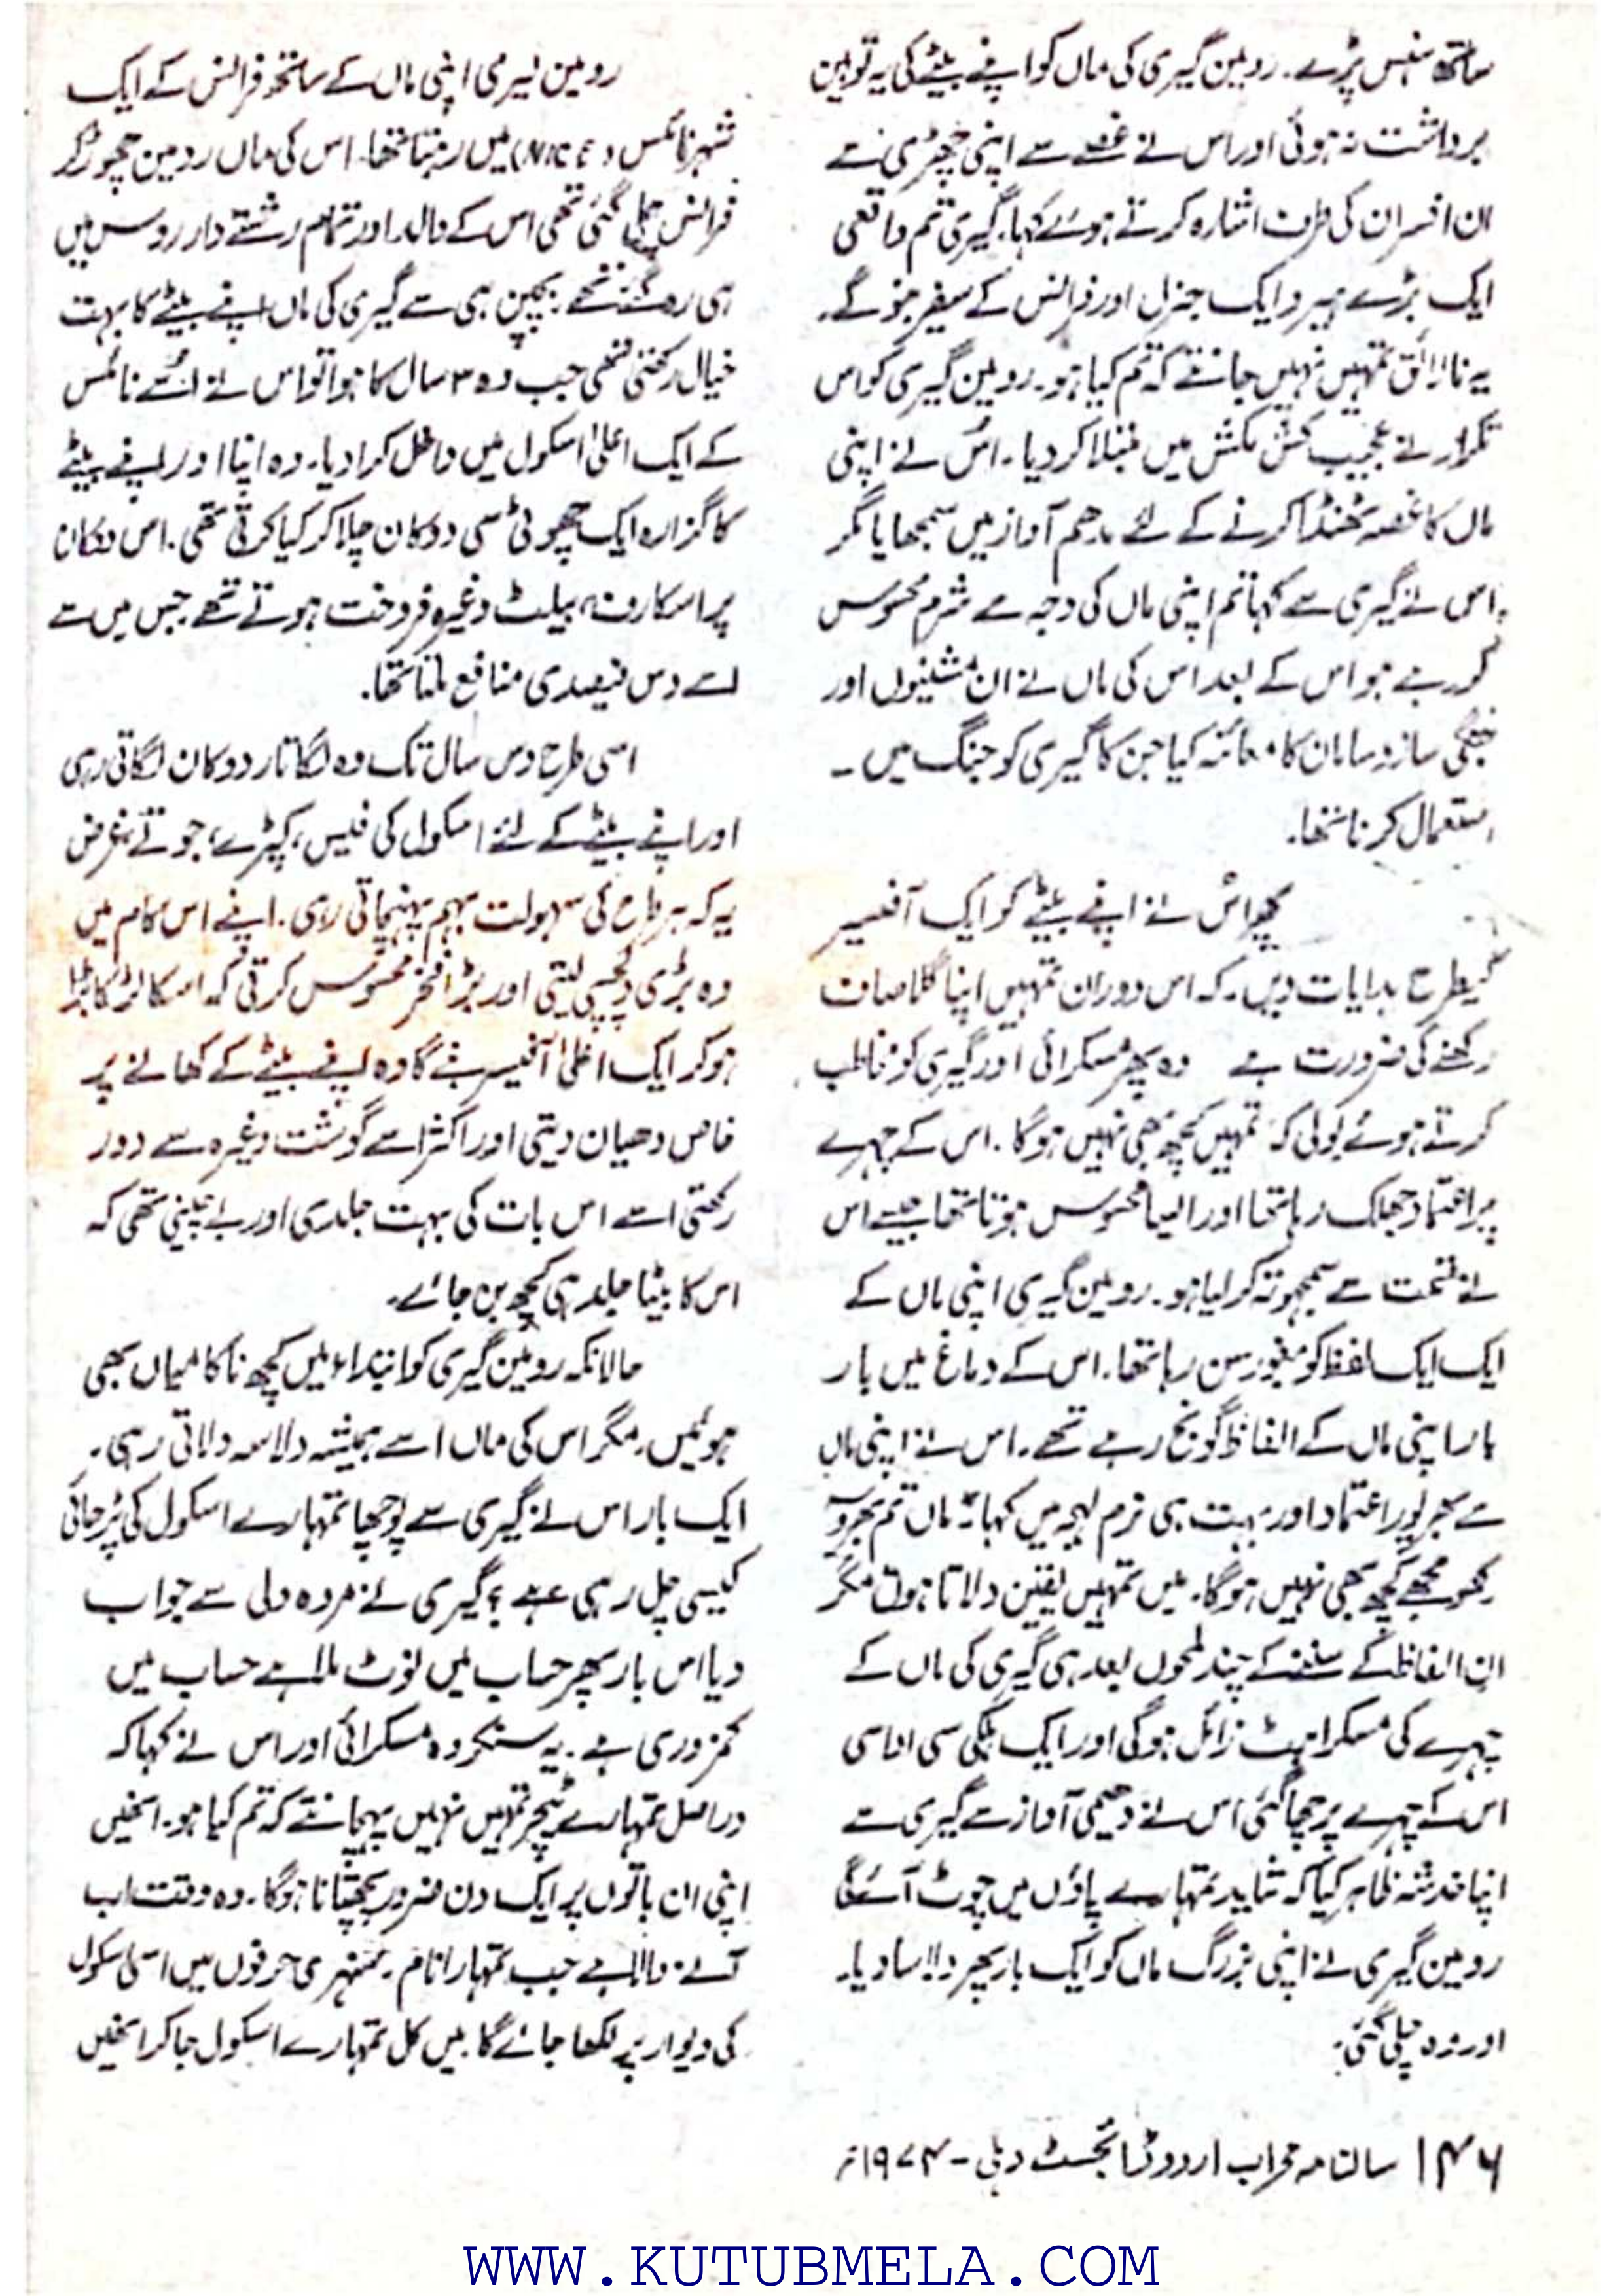 ساتھ ہنس پڑے۔ رومین گیری کی ماں کو اپنے بیٹے کی یہ توہین
برداشت نہ ہوئی اور اس نے غصے سے اپنی چھڑی سے
ان افسران کی طرف اشارہ کرتے ہوئے کہا۔ گیری تم واقعی
ایک بڑے ہیرو ایک جنرل اور فرانس کے سفیر بنو گے۔
یہ نالائق تمہیں نہیں جانتے کہ تم کیا ہو۔ رومین گیری کو اس
تکرار نے عجیب کش مکش میں مبتلا کر دیا۔ اس نے اپنی
ماں کا غصہ ٹھنڈا کرنے کے لئے مدھم آواز میں سمجھایا مگر
اس نے گیری سے کہا تم اپنی ماں کی وجہ سے شرم محسوس
کر رہے ہو اس کے بعد اس کی ماں نے ان مشینوں اور
جنگی ساز و سامان کا معائنہ کیا جن کا گیری کو جنگ میں ۔
استعمال کرنا تھا۔
پھر اس نے اپنے بیٹے کو ایک آفسیر
کیطرح ہدایات دیں۔ کہ اس دوران تمہیں اپنا گلا صاف
رکھنے کی ضرورت ہے وہ پھر مسکرائی اور گیری کو مخاطب
کرتے ہوئے بولی کہ تمہیں کچھ بھی نہیں ہو گا۔ اس کے چہرے
پر اعتماد جھلک رہا تھا اور ایسا محسوس ہوتا تھا جیسے اس
نے قسمت سے سمجھوتہ کر لیا ہو۔ رومین گیری اپنی ماں کے
ایک ایک لفظ کو بغور سن رہا تھا۔ اس کے دماغ میں بار
بار اپنی ماں کے الفاظ گونج رہے تھے۔ اس نے اپنی ماں
سے بھرپور اعتماد اور بہت ہی نرم لہجہ میں کہا "ماں تم بھروسہ
رکھو مجھے کچھ بھی نہیں ہو گا۔ میں تمہیں یقین دلاتا ہوں مگر
ان الفاظ کے سننے کے چند لمحوں بعد ہی گیری کی ماں کے
چہرے کی مسکراہٹ زائل ہو گی اور ایک ہلکی سی اداسی
اس کے چہرے پر چھا گئی اس نے دھیمی آواز سے گیری سے
اپنا خدشہ ظاہر کیا کہ شاید تمہارے پاؤں میں چوٹ آئے گی
رومین گیری نے اپنی بزرگ ماں کو ایک بار پھر دلاسا دیا۔
اور وہ چلی گئی۔
رومین گیری اپنی ماں کے ساتھ فرانس کے ایک
شہر نائس (NICE) میں رہتا تھا۔ اس کی ماں رومین چھوڑ کر
فرانس چلی گئی تھی اس کے والد اور تمام رشتے دار روس میں
ہی رہ گئے تھے۔ بچپن ہی سے گیری کی ماں اپنے بیٹے کا بہت
خیال رکھتی تھی جب وہ ۳ سال کا ہوا تو اس نے اُسے نائس
کے ایک اعلیٰ اسکول میں داخل کرا دیا۔ وہ اپنا اور اپنے بیٹے
کا گزارہ ایک چھوٹی سی دوکان چلا کر کیا کرتی تھی۔ اس دوکان
پر اسکارف، بیلٹ وغیرہ فروخت ہوتے تھے جس میں سے
اسے دس فیصدی منافع ملتا تھا۔
اسی طرح دس سال تک وہ لگاتار دوکان لگاتی رہی
اور اپنے بیٹے کے لئے اسکول کی فیس، کپڑے، جوتے، غرض
یہ کہ ہر طرح کی سہولت بہم پہنچاتی رہی۔ اپنے اس کام میں
وہ بڑی دلچسپی لیتی اور بڑا فخر محسوس کرتی کہ اسکا لڑکا بڑا
ہو کر ایک اعلیٰ آفیسر بنے گا وہ اپنے بیٹے کے کھانے پر
خاص دھیان دیتی اور اکثر اسے گوشت وغیرہ سے دور
رکھتی اسے اس بات کی بہت جلدی اور بے چینی تھی کہ
اس کا بیٹا جلد ہی کچھ بن جائے۔
حالانکہ رومین گیری کو ابتداء میں کچھ ناکامیاں بھی
ہوئیں۔ مگر اس کی ماں اسے ہمیشہ دلاسہ دلاتی رہی۔
ایک بار اس نے گیری سے پوچھا تمہارے اسکول کی پڑھائی
کیسی چل رہی ہے؟ گیری نے مردہ دلی سے جواب
دیا اس بار پھر حساب میں نوٹ ملا ہے حساب میں
کمزوری ہے۔ یہ سنکر وہ مسکرائی اور اس نے کہا کہ
دراصل تمہارے ٹیچر تمہیں نہیں پہچانتے کہ تم کیا ہو۔ انھیں
اپنی ان باتوں پر ایک دن ضرور پچھتانا ہو گا۔ وہ وقت اب
آنے والا ہے جب تمہارا نام سنہری حرفوں میں اسی اسکول
کی دیوار پر لکھا جائے گا۔ میں کل تمہارے اسکول جا کر انھیں
۱۴۶ سالنامہ محراب اردو ڈائجسٹ دہلی - ۱۹۷۴ء
WWW.KUTUBMELA.COM